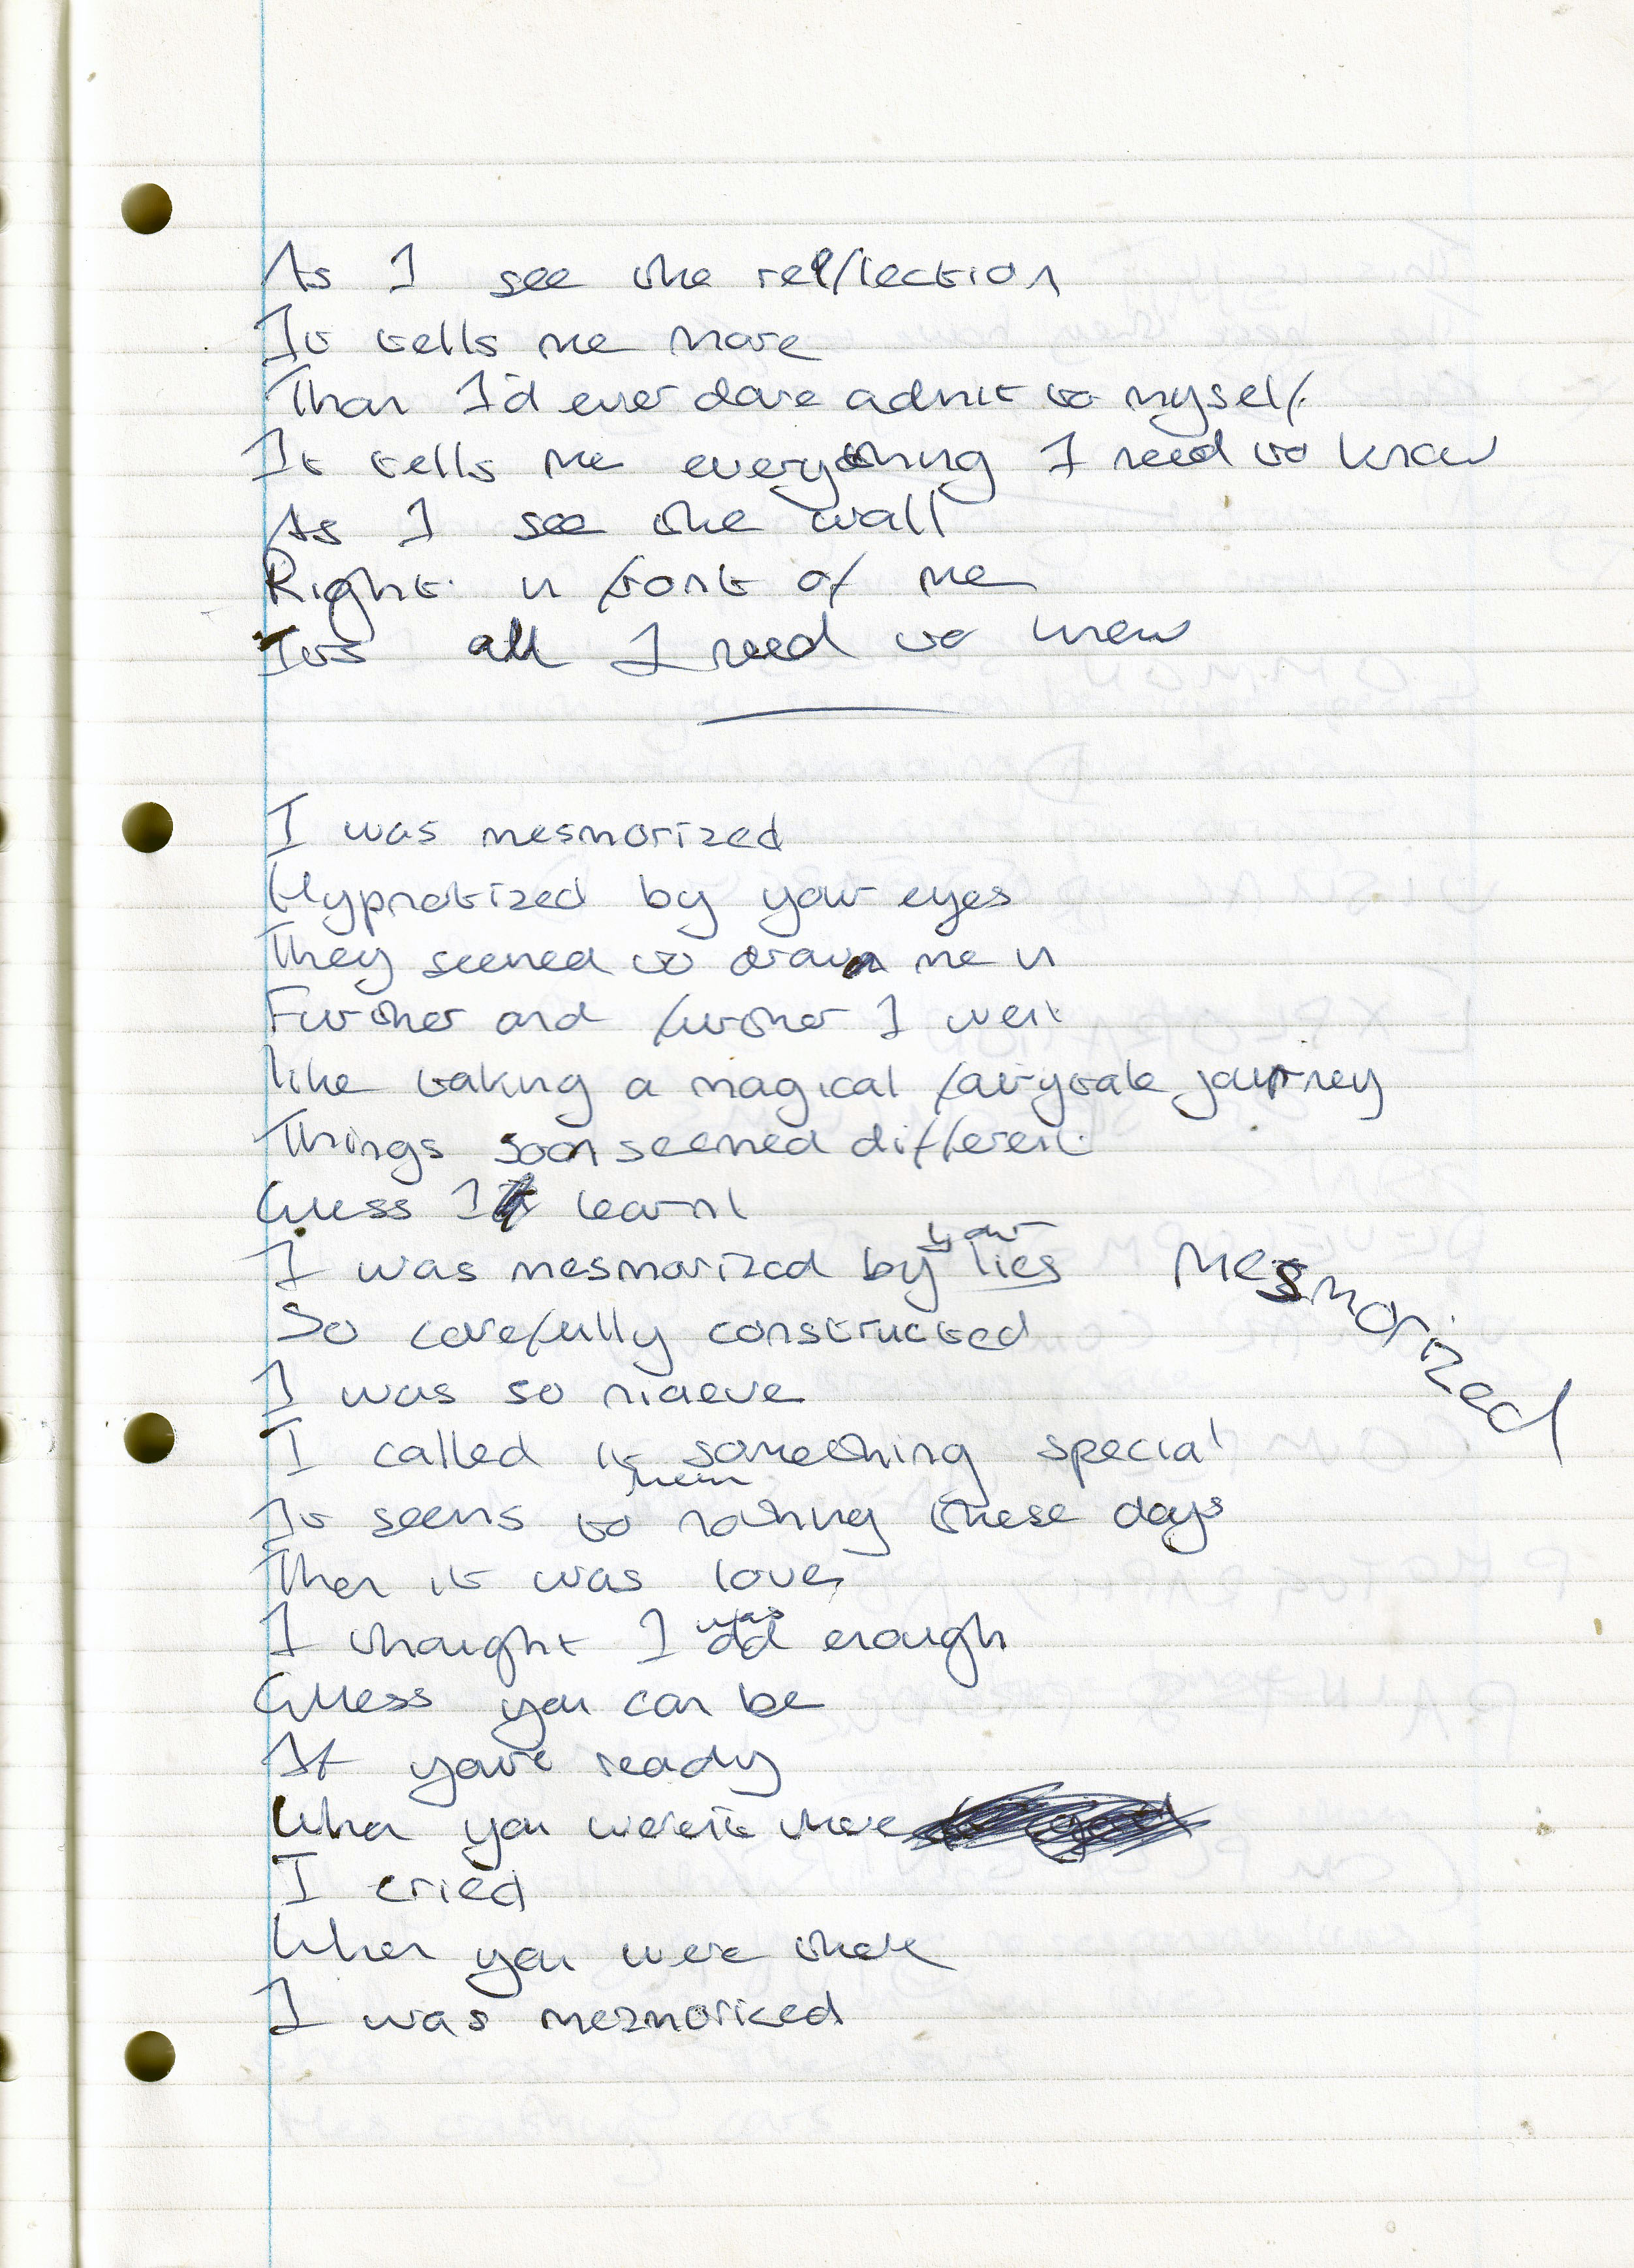 As I see the reflection
It tells me more
Than I'd ever dare admit to myself.
It tells me everything I need to know
As I see the wall
Right in front of me
Its all I need to know
I was mesmorized
Hypnotized by your eyes
They seemed to draw me in
Further and further I went
like taking a magical fairytale journey
Things soon seemed different
Guess I learnt
I was mesmorized by your lies
Mesmorized
So carefully constructed
I was so niaeve
I called it something special
It seems to mean nothing these days
Then it was love,
I thought I was old enough
Guess you can be
If your ready
When you weren't there
I cried
When you were there
I was mezmorized